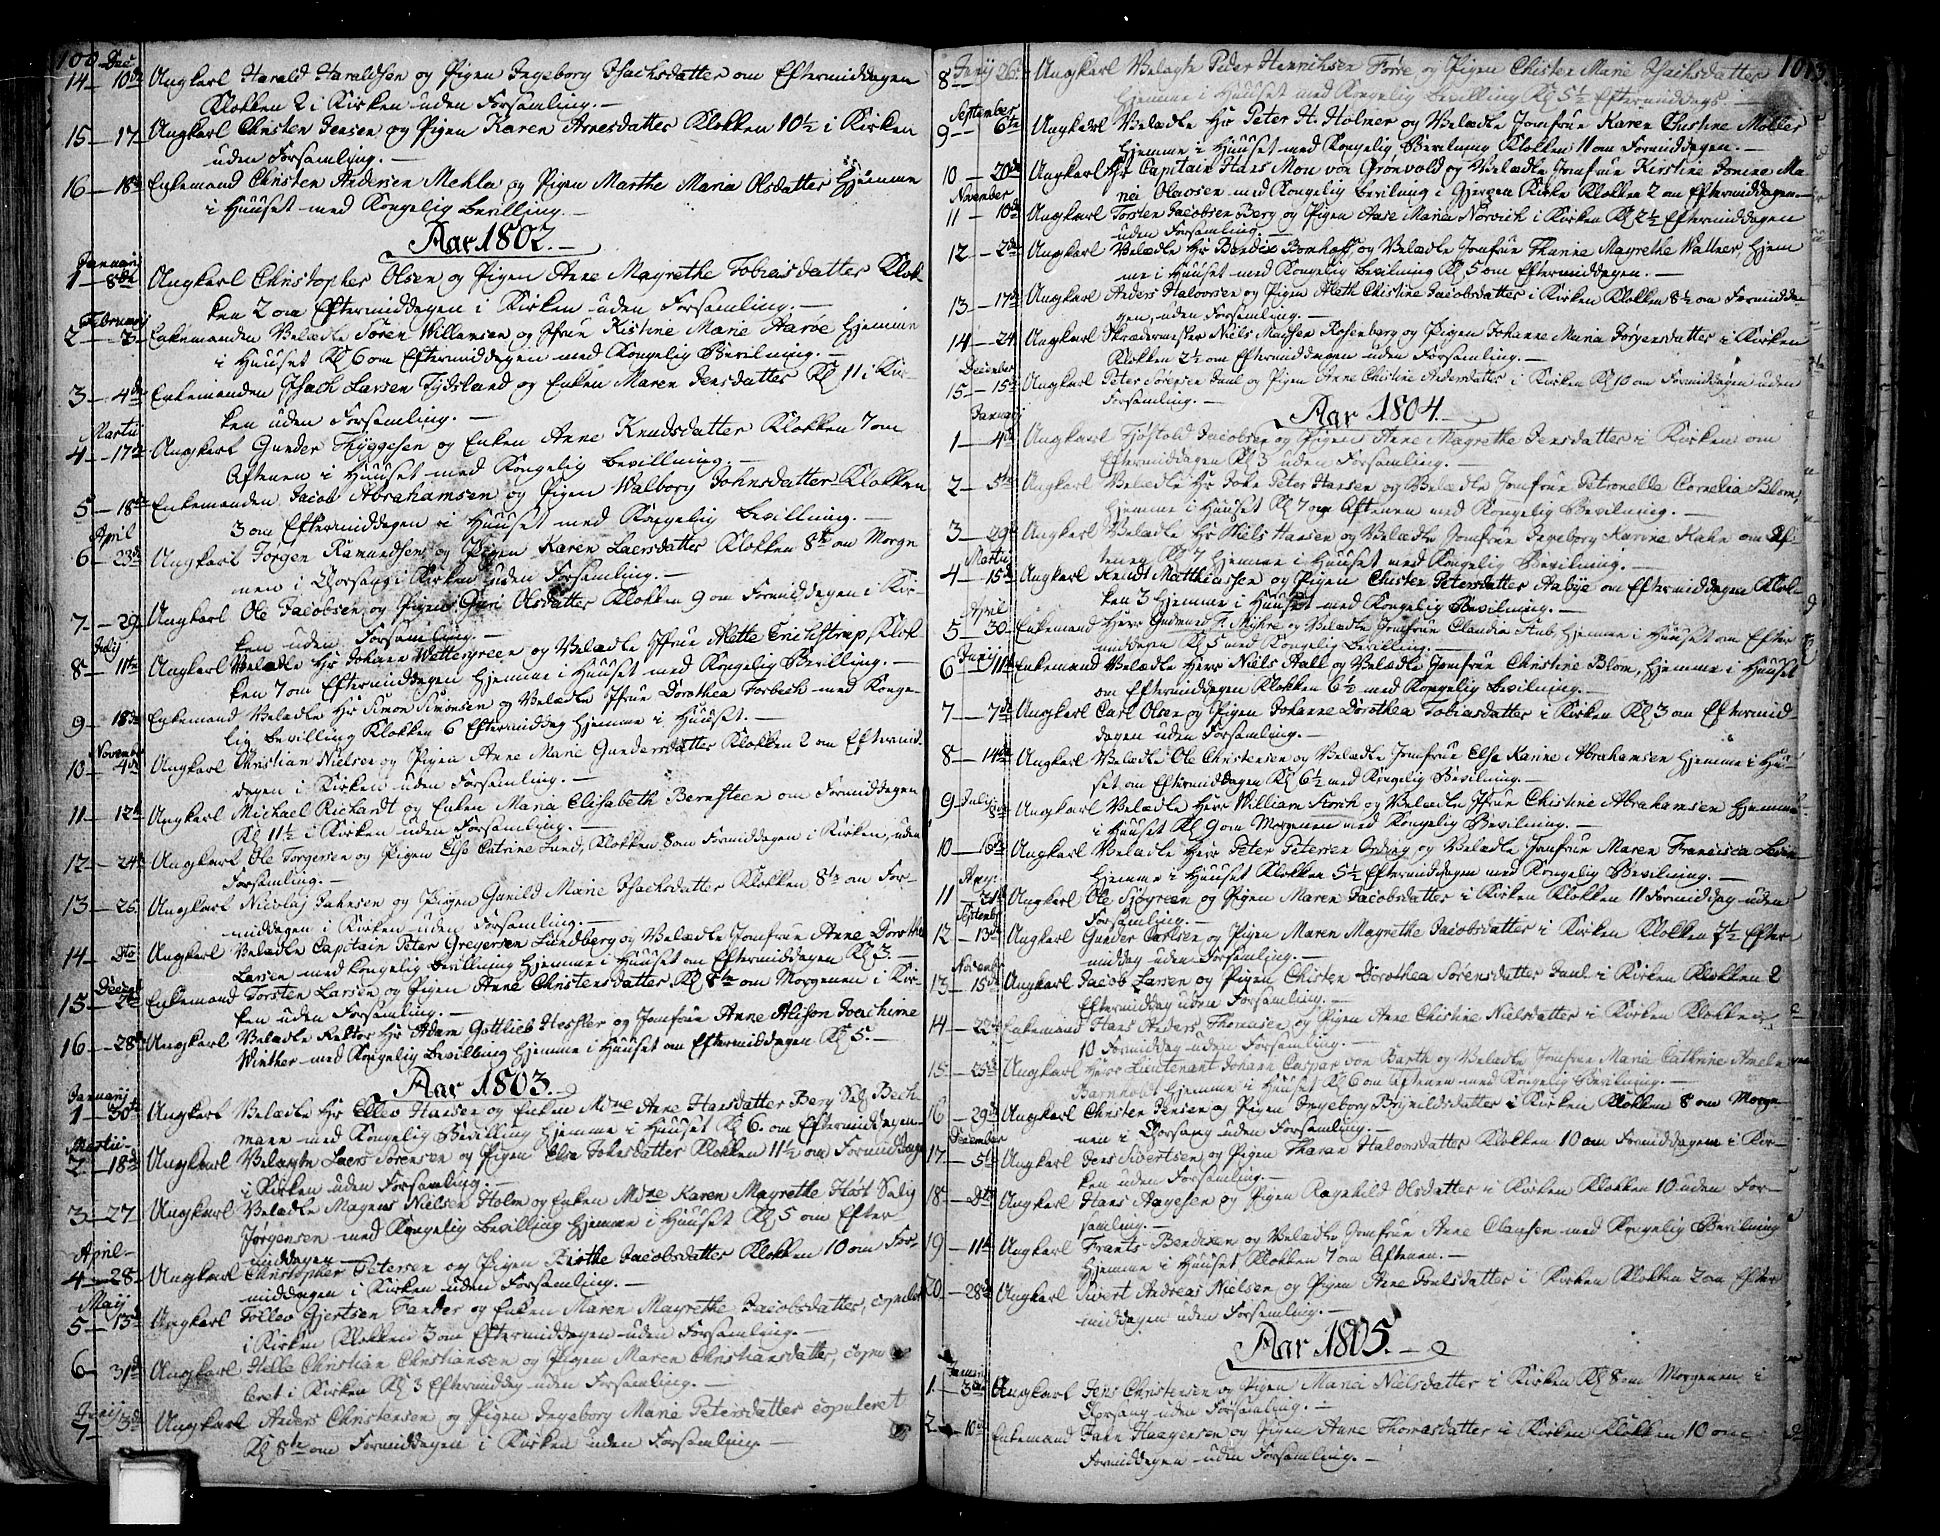 100 Dec
14 — 10de Ungkarl Harald Haraldsen og Pigen Ingeborg Isachsdatter om Eftermiddagen
Klokken 2 i Kirken uden Forsamling. —
15 — 17de Ungkarl Christen Jensen og Pigen Karen Arnesdatter Klokken 10½ i Kirken
uden Forsamling. —
16 — 18de Enkemand Christen Andersen Mehla og Pigen Marthe Maria Olsdatter Hjemme
i Huuset med Kongelig Bevilling. —
Aar 1802. —
Januarij
1 — 8de Ungkarl Christopher Olsen og Pigen Anne Magrethe Tobiasdatter Klok-
ken 2 om Eftermiddagen i Kirken uden Forsamling. —
Februarij
2 — Enkemanden Velædle Søren Willumsen og Jfrue Kistine Marie Aarøe Hjemme
i Huuset Kl 6 om Eftermiddagen med Kongelig Bevilning. —
3 — 4de Enkemanden Isach Larsen Tydsland og Enken Maren Jensdatter Kl 11 i Kir-
ken uden Forsamling. —
Martii
4 — 17de Ungkarl Gunder Thyggesen og Enken Anne Knudsdatter Klokken 7 om
Aftenen i Huuset med Kongelig Bevillning. —
5 — 18de Enkemanden Jacob Abrahamsen og Pigen Walborg Johnsdatter Klokken
3 om Eftermiddagen i Huuset med Kongelig Bevillning. —
April
6 — 23de Ungkarl Jørgen Ramundsen og Pigen Karen Laersdatter Klokken 8te om Morge
nen i Chorsang i Kirken uden Forsamling. —
7 — 29 Ungkarl Ole Jacobsen og Pigen Guri Olsdatter Klokken 9 om Formiddagen i Kir-
ken uden Forsamling. —
Julij
8 — 11te Ungkarl Velædle Hr Johann Wettergreen og Velædle Jfrue Mette Erichstrup, Klok
ken 7 om Eftermiddagen Hjemme i Huuset med Kongelig Bevilling. —
9 — 18de Enkemand Velædle Hr Simon Simonsen og Velædle Jfrue Dorothea Forbech med Konge-
lig Bevilling Klokken 6 Eftermiddag Hjemme i Huuset. —
November
10 — 4de Ungkarl Christian Nielsen og Pigen Anne Marie Gundersdatter Klokken 2 om Eftermid-
dagen i Kirken uden Forsamling. —
11 — 12te Ungkarl Michael Richardt og Enken Maria Elisabeth Bernsteen om Formiddagen
Kl 11½ i Kirken uden Forsamling. —
12 — 24de Ungkarl Ole Torgersen og Pigen Else Catrine Lund, Klokken 8 om Formiddagen i Kirken, uden
Forsamling. —
13 — 26 Ungkarl Nicolaj Jahnsen og Pigen Gunild Marie Isachsdatter Klokken 8½ om For-
middagen i Kirken uden Forsamling. —
14 — Dto Ungkarl Velædle Capitain Peter Gregersen Lundberg og Velædle Jomfrue Anne Dorothe
Larsen med Kongelig Bevillning Hjemme i Huuset om Eftermiddagen Kl 3. —
Decemb
15 — Enkemand Torsten Larsen og Pigen Anne Christensdatter, Kl 8te om Morgenen i Kir-
ken uden Forsamling. —
16 — 28de Ungkarl Velædle Rektor Hr Adam Gottlieb Hesfler og Jomfrue Anne Alison Joachime
Winther med Kongelig Bevilling Hjemme i Huuset om Eftermiddagen Kl 5. —
Aar 1803. —
Januarij
1 — 30te Ungkarl Velædle Hr Ellev Hansen og Enken Mme Anne Hansdatter Berg Sal. Bech-
mann med Kongelig Bevilling Hjemme i Huuset Kl 6. om Eftermiddagen. —
Martii
2 — 18de Ungkarl Velagte Laers Sørensen og Pigen Else Johnsdatter Klokken 11½ om Formiddage
i Kirken uden Forsamling. —
3 — 27 Ungkarl Velædle Magnus Nielsen Holm og Enken Mme Karen Magrethe Høst Salig
Jørgensen med Kongelig Bevilling Hjemme i Huuset Kl 5 om Efter
middagen —
April
4 — 28 Ungkarl Christopher Petersen og Pigen Birthe Jacobsdatter Klokken 10 om For-
middagen i Kirken uden Forsamling. —
Maij
5 — 13de Ungkarl Tollev Gjertsen Sander og Enken Maren Magrethe Jacobsdatter, copuler
i Kirken Klokken 3 om Eftermiddagen uden Forsamling. —
6 — 31de Ungkarl Helle Christian Christiansen og Pigen Maren Christiansdatter, copu
leret i Kirken Kl 3 Eftermiddag uden Forsamling. —
Junij
7 — 3de Ungkarl Anders Christensen og Pigen Ingeborg Marie Petersdatter copuleret
Kl 8te om Formiddagen i Kirken uden Forsamling —
101
Junij
8 — 26 Ungkarl Velagte Peder Henrichsen Forre og Pigen Chisten Marie Isachsdatter
Hjemme i Huuset med Kongelig Bevilling Kl 5½ Eftermiddags. —
September
9 — 6te Ungkarl Velædle Hr Peter H. Holmer og Velædle Jomfrue Karen Chistine Møller
Hjemme i Huuset med Kongelig Bevilning Klokken 11 om Formiddagen. —
10 — 20de Ungkarl Hr Capitain Hans Mon von Grønvold og Velædle Jomfrue Kirstine Jonine Ma-
ria Olavsen med Kongelig Bevilning i Kirke Klokken 2 om Eftermiddagen. —
November
11 — 10de Ungkarl Torsten Jacobsen Berg og Pigen Aase Maria Norvich i Kirken Kl 2½ Eftermiddagen
uden Forsamling. —
12 — 2de Ungkarl Velædle Hr Bendix Bonhoff og Velædle Jomfrue Thanna Magrethe Wattner, Hjem
me i Huuset med Kongelig Bevilning Kl 5 om Eftermiddagen. —
13 — 17de Ungkarl Anders Halvorsen og Pigen Aleth Chistine Jacobsdatter i Kirken Klokken 8½ om Formidda-
gen, uden Forsamling. —
14 — 24 Ungkarl Skrædermester Niels Madsen Rosenberg og Pigen Johanne Maria Jørgensdatter i Kirken
Klokken 2½ om Eftermiddagen uden Forsamling. —
December
15 — 15de Ungkarl Peter Sørensen Juul og Pigen Anne Chistine Andersdatter i Kirken Kl 10 om Formiddagen uden
Forsamling. —
Aar 1804. —
Januarij
1 — 4de Ungkarl Tjøstold Jacobsen og Pigen Anne Magrethe Jensdatter i Kirken om
Eftermiddagen Kl 3 uden Forsamling. —
2 — 5te Ungkarl Velædle Hr Peter Hansen og Velædle Jomfrue Petronelle Cornelia Blom,
Hjemme i Huuset Kl 7 om Aftenen med Kongelig Bevilning. —
3 — 29de Ungkarl Velædle Hr Niels Hansen og Velædle Jomfrue Ingeborg Karine Hahn om Af-
tenen Kl 7 Hjemme i Huuset med Kongelig Bevilning. —
Martii
4 — 15de Ungkarl Knudt Matthiassen og Pigen Chisten Petersdatter Aabye om Eftermiddagen Klok-
ken 3 Hjemme i Huuset med Kongelig Bevilning. —
April
5 — 30 Enkemand Herr Gudmed T. Myhre og Velædle Jomfrue Claudia Stub, Hjemme i Huuset om Efter
middagen Kl 5 med Kongelig Bevilling. —
Junij
6 — 11te Enkemand Velædle Herr Niels Aall og Velædle Jomfrue Christine Blom, Hjemme i Huuset
om Eftermiddagen Klokken 6½ med Kongelig Bevilning. —
7 — 7de Ungkarl Carl Olsen og Pigen Johanne Dorothea Tobiasdatter i Kirken Kl 3 om Eftermid-
dagen uden Forsamling. —
8 — 14de Ungkarl Velædle Ole Christensen og Velædle Jomfrue Else Karine Abrahamsen Hjemme i Huu-
set om Eftermiddagen Kl 6½ med Kongelig Bevilning. —
Julij
9 — 8de Ungkarl Velædle Herr William Kirch og Velædle Jfrue Chistine Abrahamsen Hjemme
i Huuset Kl 9 om Morgenen med Kongelig Bevilning. —
10 — Ungkarl Velædle Herr Peter Petersen Ording og Velædle Jomfrue Maren Francisca
Hjemme i Huuset Klokken 5½ Eftermiddagen med Kongelig Bevilning. —
Aug:
11 — 31de Ungkarl Ole Sjøgreen og Pigen Maren Jacobsdatter i Kirken Klokken 11 Formiddag uden
Forsamling. —
Septemb
12 — 13de Ungkarl Gunder Carlsen og Pigen Maren Magrethe Jacobsdatter i Kirken Klokken Efter-
middag uden Forsamling. —
Novemb
13 — 15de Ungkarl Jacob Larsen og Pigen Chisten Dorothea Sørensdatter Juul i Kirken Klokken 2
Eftermiddag uden Forsamling. —
14 — 22de Enkemand Hans Anders Thomasen og Pigen Anne Chistine Nielsdatter i Kirken Klokken
10 Formiddag uden Forsamling. —
15 — 25de Ungkarl Herr Lieutenant Johann Caspar von Barth og Velædle Jomfrue Maria Cathrine Amelia
Barnholdt Hjemme i Huuset Kl 6 om Aftenen med Kongelig Bevilning. —
16 — 29de Ungkarl Christen Jensen og Pigen Ingeborg Brynildsdatter i Kirken Klokken 8 om Morge
nen i Chorsang uden Forsamling. —
December
17 — 5te Ungkarl Jens Sivertsen og Pigen Tharan Halvorsdatter Klokken 10 om Formiddagen i Kir-
ken uden Forsamling. —
18 — Dto Ungkarl Hans Aagesen og Pigen Ragnhild Olsdatter i Kirken Klokken 10 uden For-
samling. —
19 — 11te Ungkarl Frants Bendixen og Velædle Jomfrue Anne Clausen med Kongelig Bevilning
Hjemme i Huuset Klokken 7 om Aftenen. —
20 — 28de Ungkarl Sivert Andreas Nielsen og Pigen Anne Poulsdatter i Kirken Klokken 2 om Efter
middagen uden Forsamling. —
Aar 1805. —
Januarij
1 — 3de Ungkarl Jens Christensen og Pigen Maria Nielsdatter i Kirken Kl 8 om Morgenen i
Chorsang uden Forsamling. —
2 — 10de Enkemand Jahn Haagensen og Pigen Anne Thomasdatter i Kirken Klokken 10 om
Formiddagen uden Forsamling. —